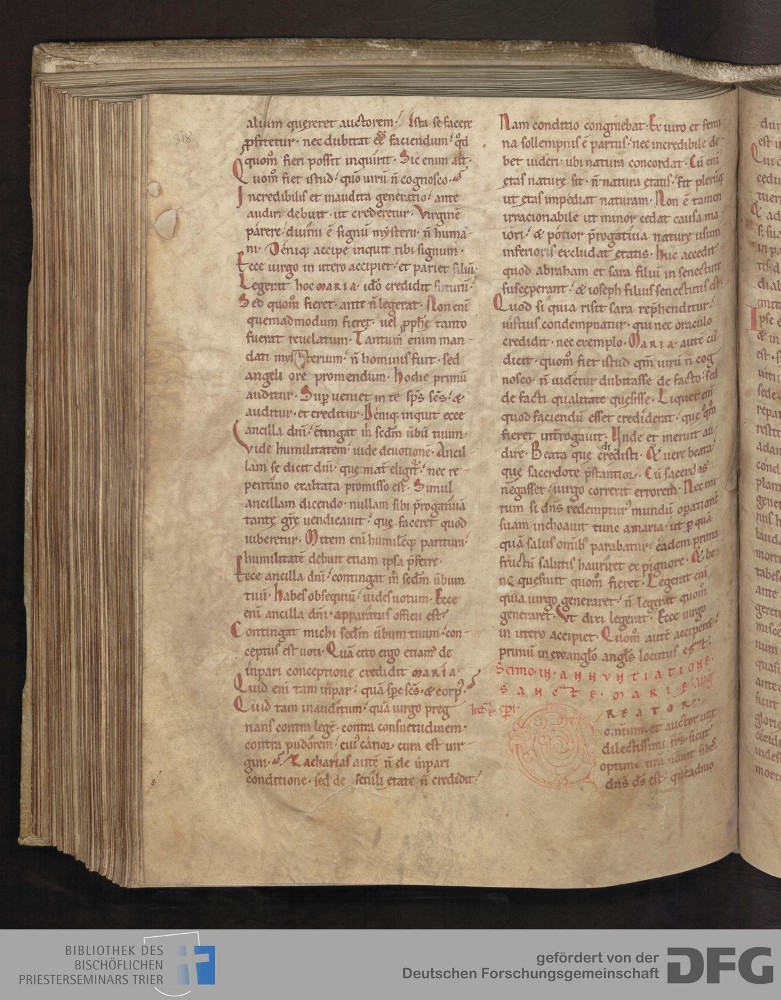 318
alium quereret auctorem. Ista se facere
ꝓfitetur. nec dubitat eẽ faciendum. qđ
quom̃ fieri possit inquirit. Sic enim ait.
Quom̃ fiet istud. quo uirũ ñ cognosco.
Incredibilis et inaudita generatio. ante
audiri debuit. ut crederetur. Virginẽ
parere. diuini ẽ signũ mysterii. ñ huma
ni. Deniq; accipe inquit tibi signum.
Ecce uirgo in utero accipiet. et pariet filiũ.
Legerat hoc MARIA. idõ credidit futurũ.
Sed quom̃ fieret. ante ñ legerat. Non enĩ
quemadmodum fieret. uel ꝓphẽ tanto
fuerat reuelatum. Tantum enim man
dati mysterium. ñ hominis fuit. sed
angeli ore promendum. Hodie primũ
auditur. Suꝑ ueniet in te sp̃s sc̃s. &
auditur. et creditur. Deniq; inquit ecce
ancilla dñi. ctingat m̃ scdm̃ ũbũ tuum.
Vide humilitatem. uide deuotione. Ancil
lam se dicit dñi. que mat̃ eligit̃. nec re
pentino exaltata promisso est. Simul
ancillam dicendo. nullam sibi p̃rogatiuã
tante gr̃e uendicauit. que faceret quod
iuberetur. Mitem enĩ humilẽq; paritura.
humilitatẽ debuit etiam ipsa p̃ferre.
Ecce ancilla dñi. contingat m̃ scdm̃ ũbum
tuũ. Habes obsequiũ. uides uotum. Ecce
enĩ ancilla dñi. apparatus officii est.
Contingat michi scdm̃ ũbum tuum. con
ceptus est uoti. Quã cito ergo etiam de
inpari conceptione credidit MARIA.
Quid enĩ tam inpar. quã sp̃c sc̃s. & corp;.
Quid tam inauditum. quã uirgo preg
nans contra legẽ. contra consuetudinem.
contra pudorem. cui; cãrior cura est uir
gini. Zacharias aute ñ de inpari
conditione. sed de senili etate ñ credidit.
Nam conditio congruebat. Ex uiro et femi
na sollempnis ẽ partus. nec incredibile de
bet uideri. ubi natura concordat. Cũ enĩ
etas nature sit. ñ natura etatis. Fit plerũq;
ut etas impediat naturam. Non ẽ tamen
irracionabile ut minor cedat causa ma
iori. & potior p̃rogatiua nature usum
inferioris excludat etatis. Huc accedit
quod abraham et sara filiũ in senectute
susceperant. & ioseph filius senectutis est.
Quod si quia risit sara rep̃henditur.
iustius condempnatur. qui nec oraculo
credidit. nec exemplo. MARIA aute cũ
dicit. quom̃ fiet istud qm̃ uirũ ñ cog
nosco. ñ uidetur dubitasse de facto. sed
de facti qualitate quesisse. Liquet enĩ
quod faciendũ esset crediderat. que qm̃
fieret int̃rogauit. Unde et meruit au
dire. Beata que credidisti. & uere beata
que sacerdote p̃stantior. Cũ sacerdos
negasset. uirgo correxit errorem. Nec mi
rum si dñs redempturus mundũ opationẽ
suam inchoauit tunc amaria. ut ꝑ quã
quã salus omib; parabatur. eadem prima
fructũ salutis hauriret ex pignore. & be
ne quesiuit quom̃ fieret. Legerat enĩ
quia uirgo generaret. ñ legerat quom̃
generaret. Ut dixi legerat. Ecce uirgo
in utero accipiet. Quom̃ aute acciperet.
primũ in ewanglio angls locutus est.
Sermo in ANNUNTIATIONE
SANCTE MARIE.
CREATOR
omnium. et auctor uite
dilectissimi fr̃s. sicut
optime uni
dñs ds est. queadmo
BIBLIOTHEK DES
BISCHÖFLICHEN
PRIESTERSEMINARS TRIER
gefördert von der
Deutschen Forschungsgemeinschaft
DFG